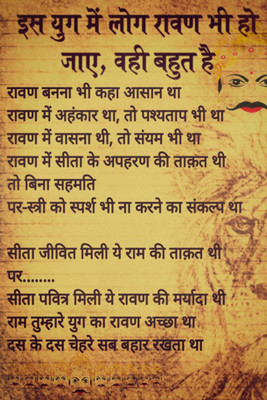 इस युग में लोग रावण भी हो
जाए, वही बहुत है
रावण बनना भी कहा आसान था
रावण में अहंकार था, तो पश्यताप भी था
रावण में वासना थी, तो संयम भी था
रावण में सीता के अपहरण की ताक़त थी
तो बिना सहमति
पर-स्त्री को स्पर्श भी ना करने का संकल्प था
सीता जीवित मिली ये राम की ताक़त थी
पर........
सीता पवित्र मिली ये रावण की मर्यादा थी
राम तुम्हारे युग का रावण अच्छा था
दस के दस चेहरे सब बहार रखता था